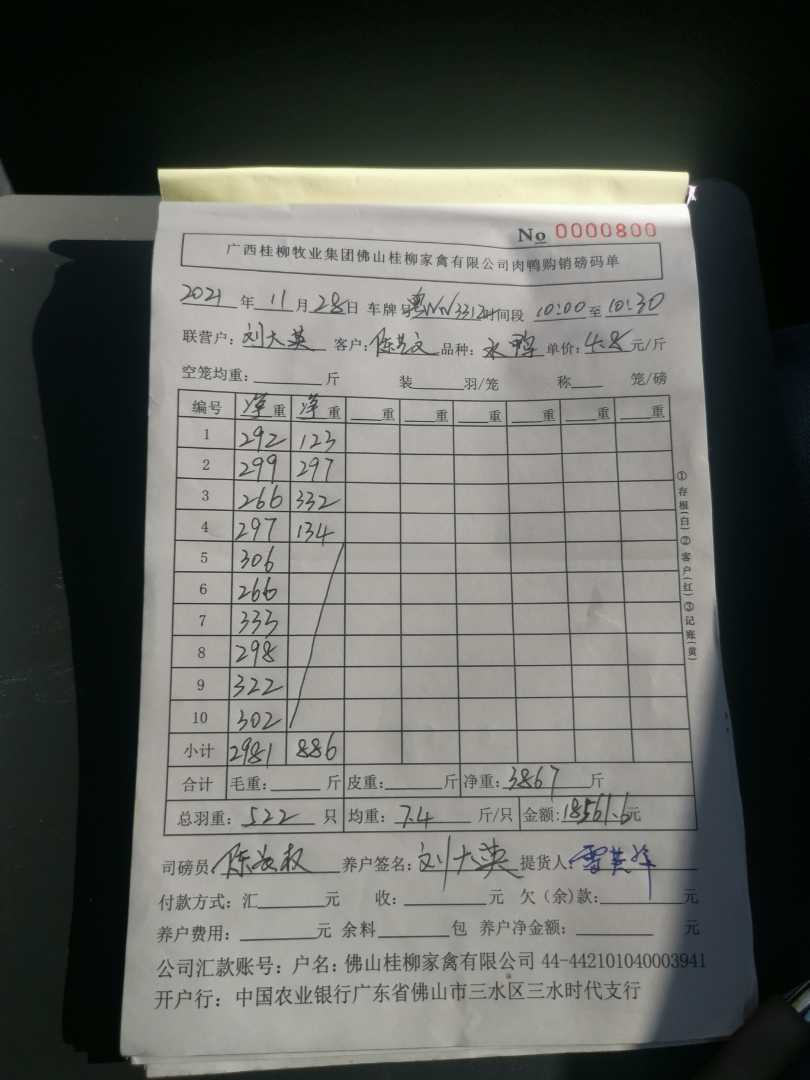 No 0000800
广西桂柳牧业集团佛山桂柳家禽有限公司肉鸭购销磅码单
2021年11月28日 车牌号粤NW3312时间段 10:00至10:30
联营户：刘大英 客户：陈文 品种：水鸭 单价：4.8元/斤
空笼均重：______斤 装______羽/笼 称____笼/磅
编号 净重 净重 ___重 ___重 ___重 ___重 ___重 ___重
1 292 123
2 299 297
3 266 332
4 297 134
5 306
6 266
7 333
8 298
9 322
10 302
小计 2981 886
合计 毛重：______斤 皮重：______斤 净重：3867斤
总羽重：522只 均重：7.4斤/只 金额：18561.6元
司磅员：陈权 养户签名：刘大英 提货人：
付款方式：汇______元 收：______元 欠（余）款：______元
养户费用：______元 余料______包 养户净金额：______元
公司汇款账号：户名：佛山桂柳家禽有限公司 44-442101040003941
开户行：中国农业银行广东省佛山市三水区三水时代支行
①存根(白)②客户(红)③记账(黄)